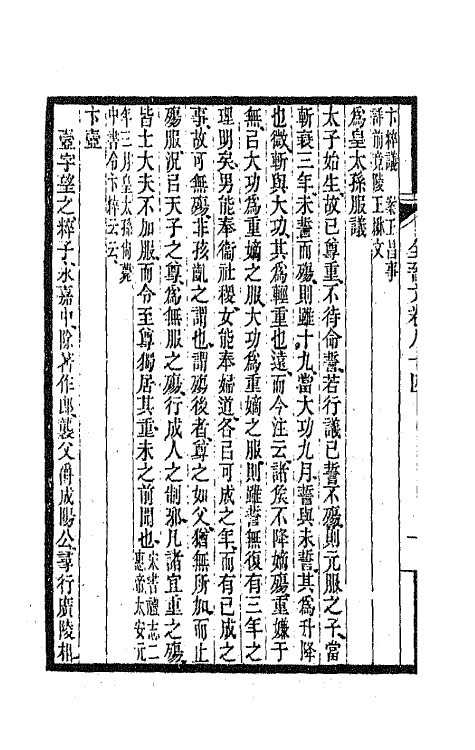 卞粹議 案王昌事
詳前竟陵王楙文
爲皇太孫服議
太子始生故已尊重不待命誓若行議已誓不殤則元服之子當
斬衰三年未誓而殤則雖十九當大功九月誓與未誓其爲升降
也微斬與大功其爲輕重也遠而今注云諸矦不降嫡殤重嫌于
無㠯大功爲重嫡之服大功爲重嫡之服則雖誓無復有三年之
理明矣男能奉衞社稷女能奉婦道各㠯可成之年而有已成之
事故可無殤非孩齔之謂也謂殤後者尊之如父猶無所加而止
殤服況㠯天子之尊爲無服之殤行成人之制邪凡諸宜重之殤
皆士大夫不加服而令至尊獨居其重未之前聞也 宋書禮志二惠帝太安元
年三月皇太孫尚薨
中書令卞粹云云
卞壼
壼字望之粹子永嘉中除著作郎襲父爵成陽公尋行廣陵相
全晉文卷八十四
一